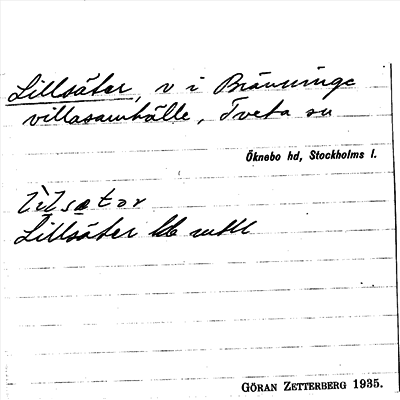 Lillsäter, v i Bränninge
villasamhälle, Tveta sn
Öknebo hd, Stockholms l.
Lillsäter
GÖRAN ZETTERBERG 1935.